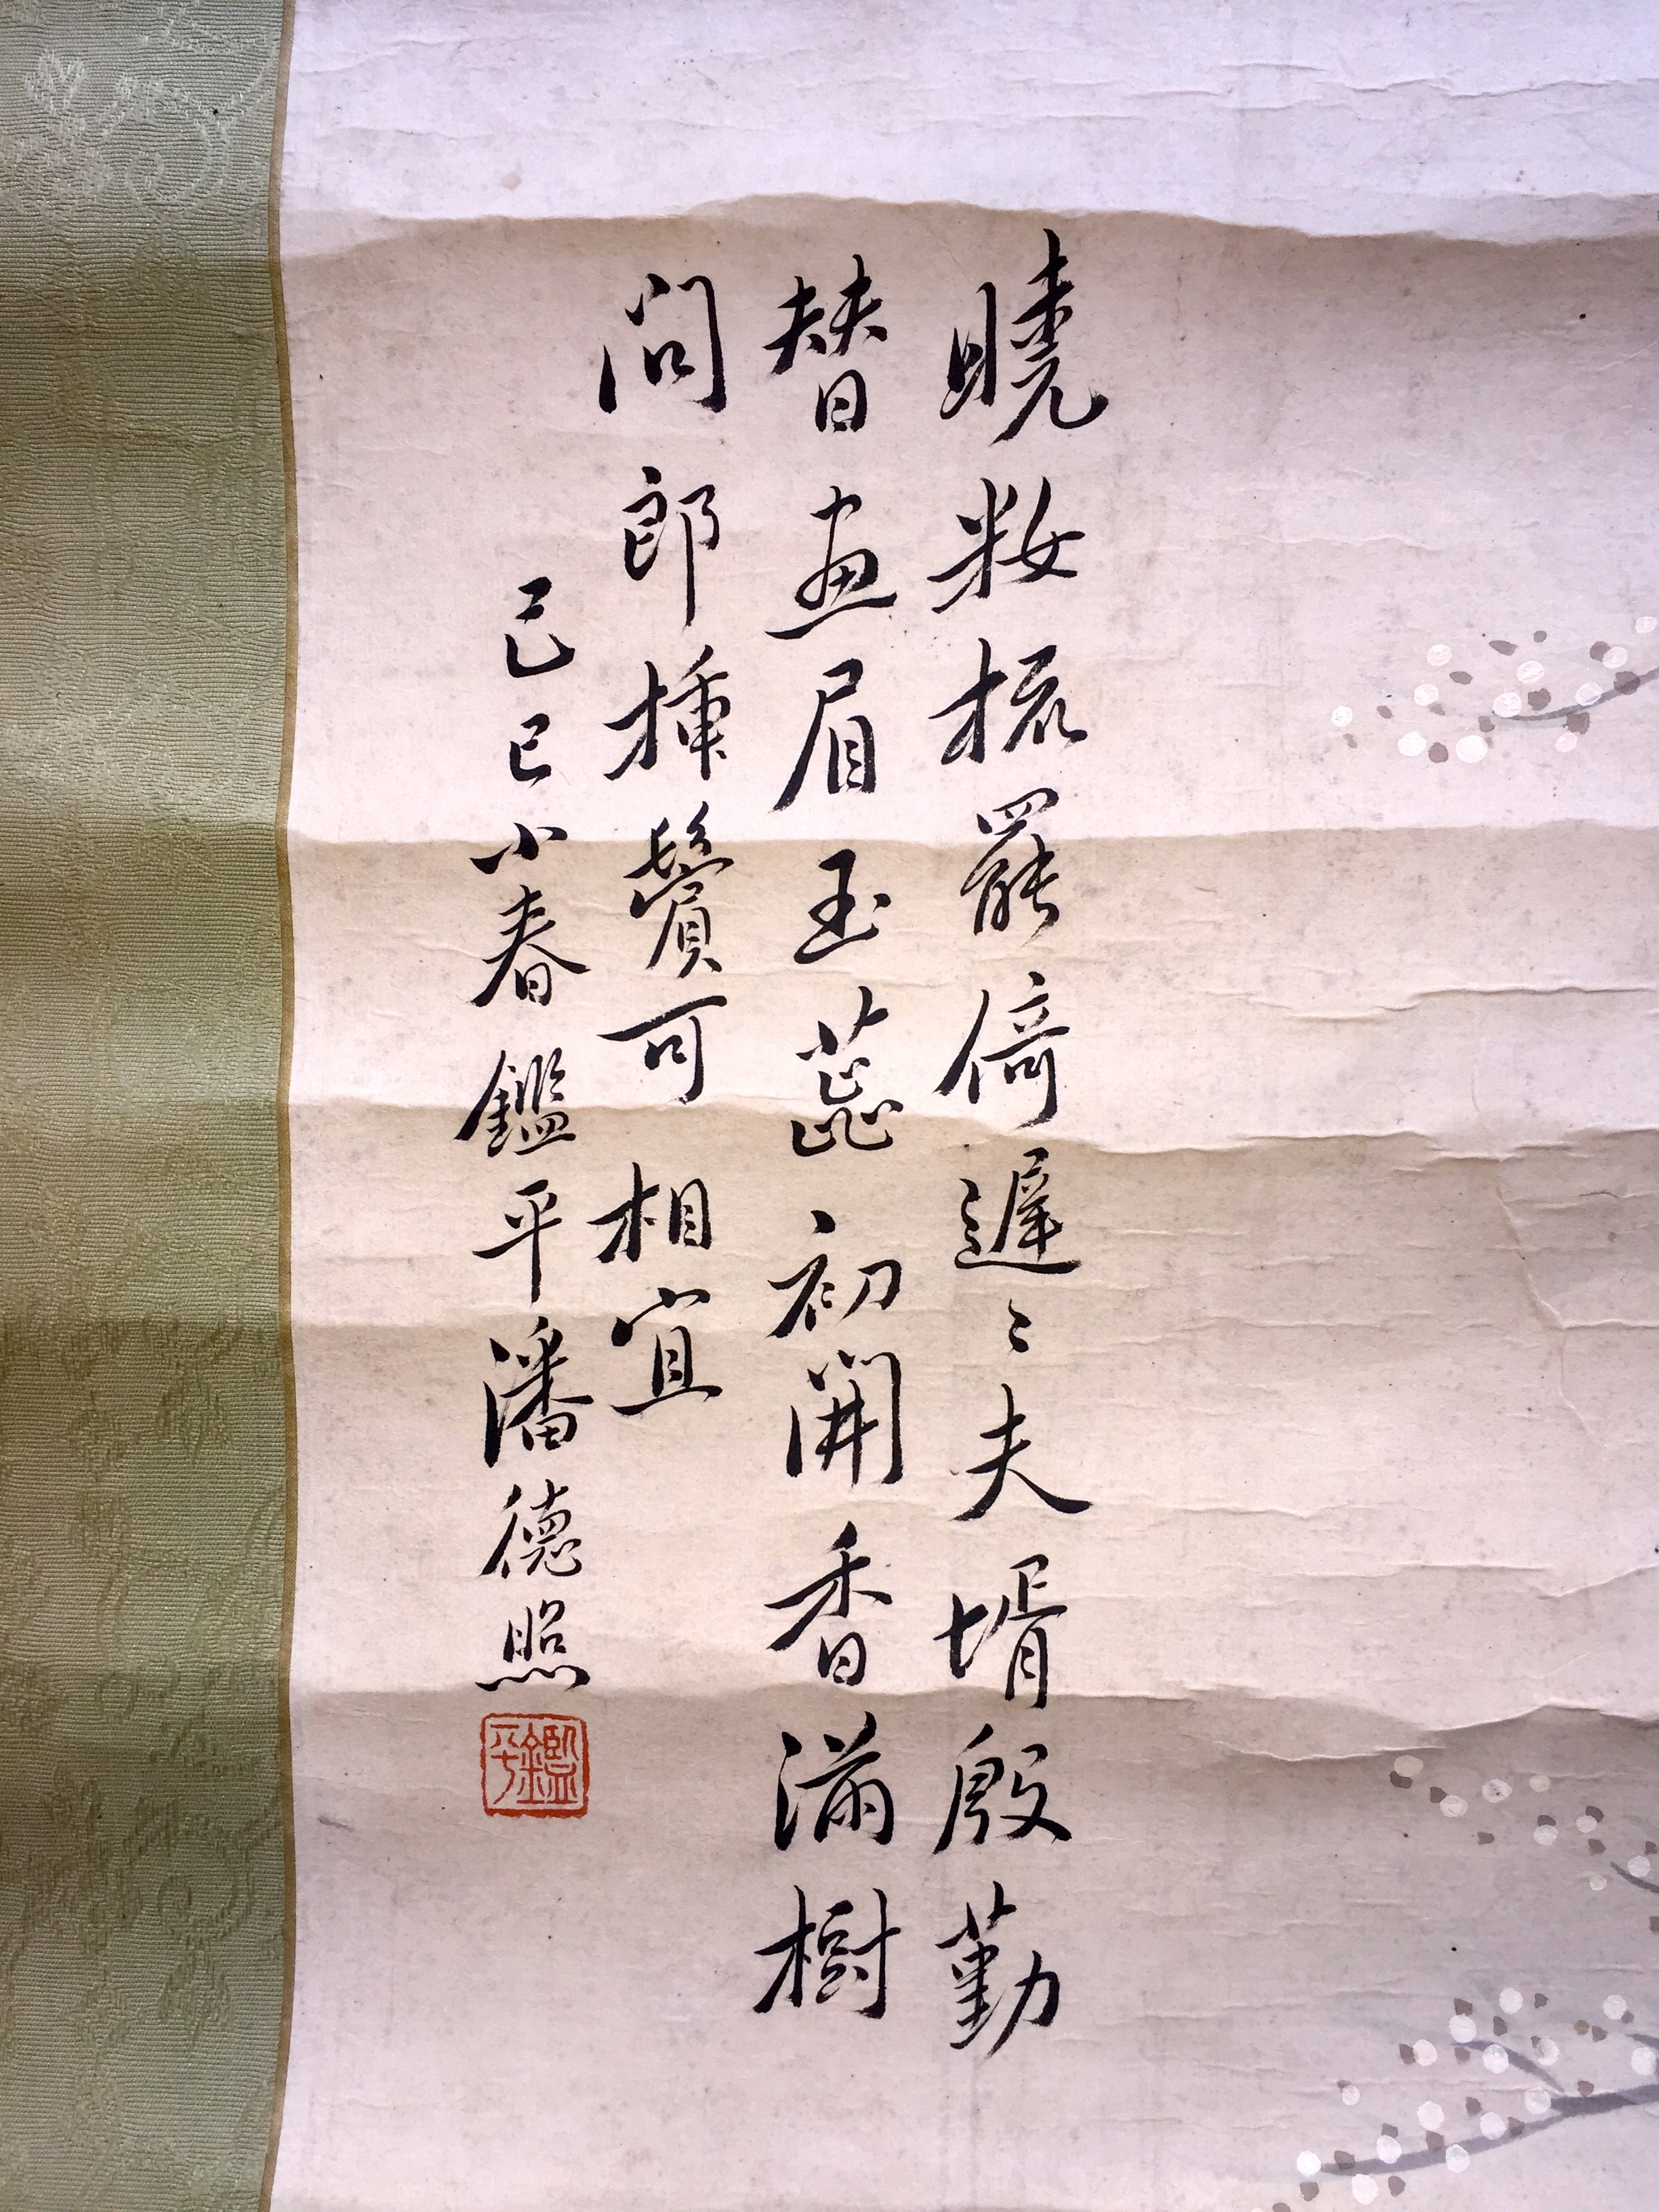 曉妝梳罷倚遲〻夫壻殷勤
替畫眉玉蕊初開香滿樹
問郎插鬢可相宜
己巳小春鑑平潘德照
鑑平